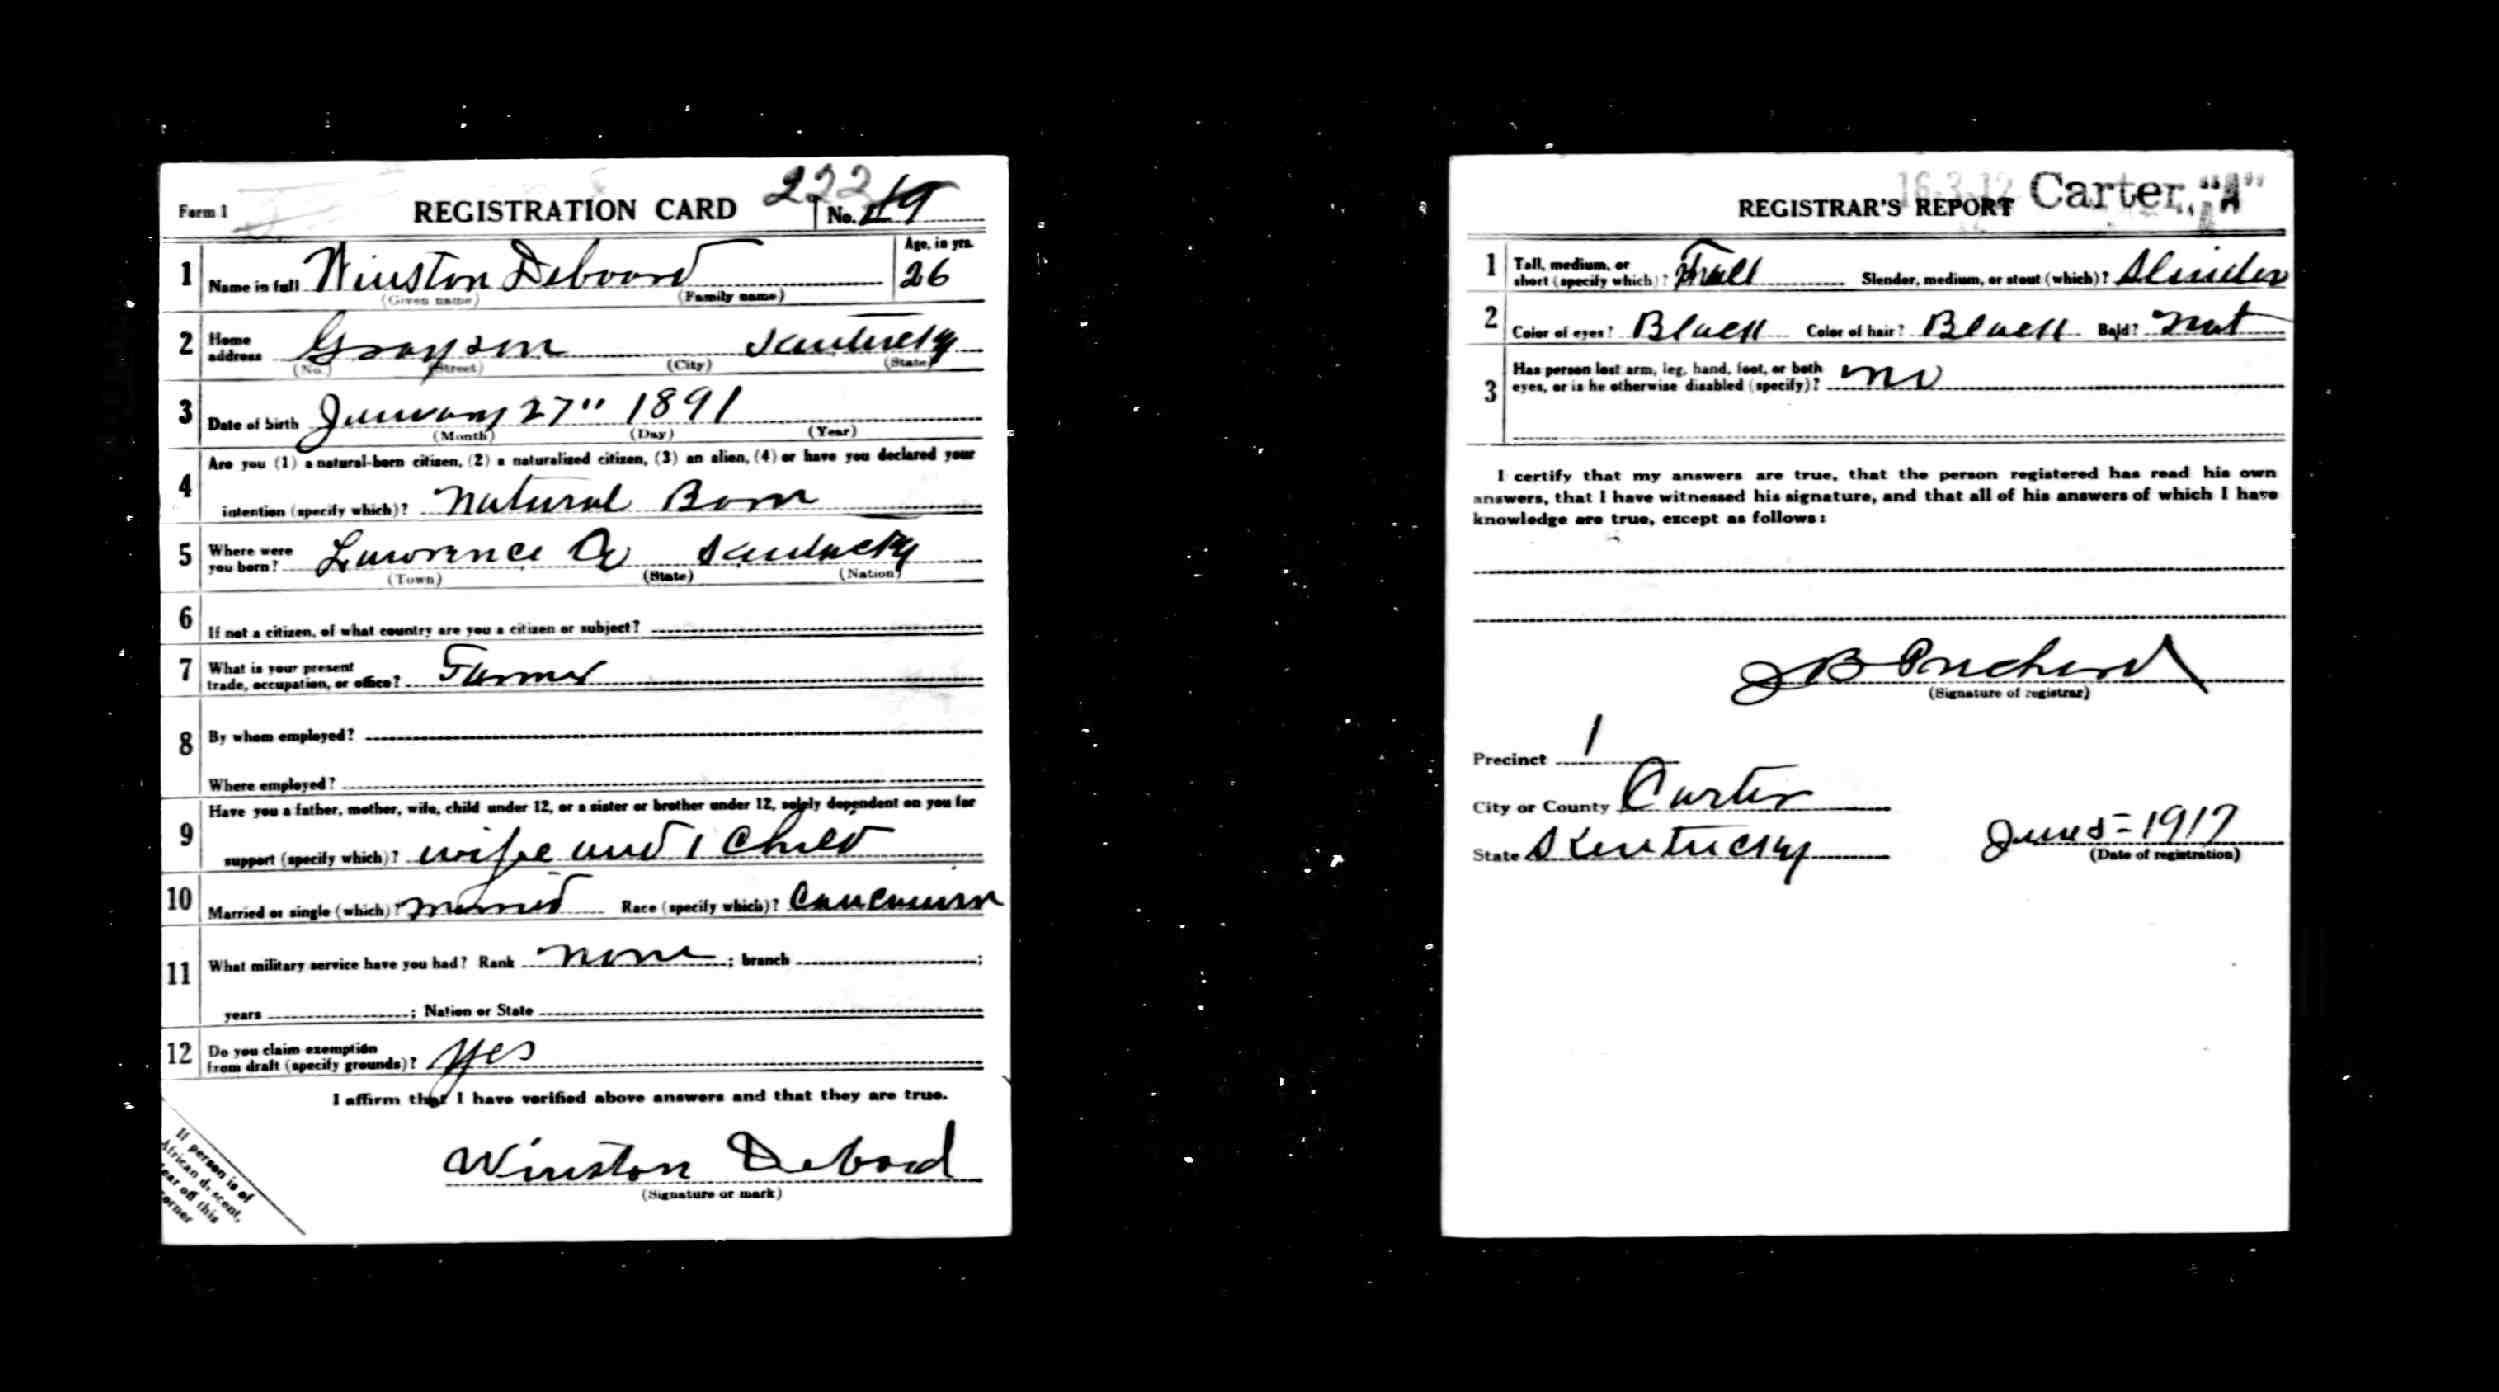 Form 1
REGISTRATION CARD
223
No. 19
1 Name in full Winston Deboard
Age, in yrs.
26
(Given name) (Family name)
2 Home address Grayson Kentucky
(No.) (Street) (City) (State)
3 Date of birth January 27" 1891
(Month) (Day) (Year)
4 Are you (1) a natural-born citizen, (2) a naturalized citizen, (3) an alien, (4) or have you declared your
intention (specify which)? Natural Born
5 Where were you born? Lawrence Co Kentucky
(Town) (State) (Nation)
6 If not a citizen, of what country are you a citizen or subject?
7 What is your present
trade, occupation, or office? Farmer
8 By whom employed?
Where employed?
9 Have you a father, mother, wife, child under 12, or a sister or brother under 12, solely dependent on you for
support (specify which)? wife and 1 Child
10 Married or single (which)? married Race (specify which)? Caucasian
11 What military service have you had? Rank none ; branch ;
years ; Nation or State
12 Do you claim exemption
from draft (specify grounds)? Yes
I affirm that I have verified above answers and that they are true.
Winston Debord
(Signature or mark)
If person is of
African descent,
tear off this
corner
16-3-12 Carter, "A"
REGISTRAR'S REPORT
1 Tall, medium, or
short (specify which)? Tall Slender, medium, or stout (which)? Slender
2 Color of eyes? Black Color of hair? Black Bald? Not
3 Has person lost arm, leg, hand, foot, or both
eyes, or is he otherwise disabled (specify)? no
I certify that my answers are true, that the person registered has read his own
answers, that I have witnessed his signature, and that all of his answers of which I have
knowledge are true, except as follows:
J B Prichard
(Signature of registrar)
Precinct 1
City or County Carter
State Kentucky
June 5 = 1917
(Date of registration)